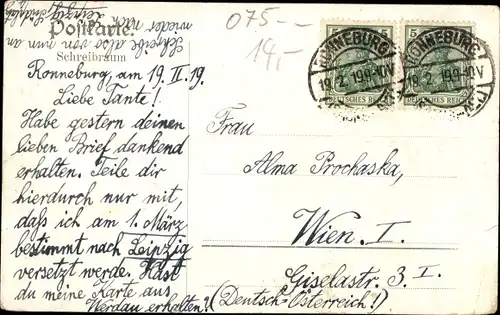 Postkarte.
Schreibraum
Schreibe also von nun an
wieder nach
Leipzig
075--
14,-
Ronneburg, am 19. II. 19.
Liebe Tante!
Habe gestern deinen
lieben Brief dankend
erhalten. Teile dir
hierdurch nur mit,
daß ich am 1. März
bestimmt nach Leipzig
versetzt werde. Hast
du meine Karte aus
Werdau erhalten?
RONNEBURG
19.2.19 9-10V
5 5
DEUTSCHES REICH
RONNEBURG
19.2.19 9-10V
5 5
DEUTSCHES REICH
Frau
Alma Prochaska,
Wien. I.
Giselastr. 3. I.
(Deutsch-Österreich!)